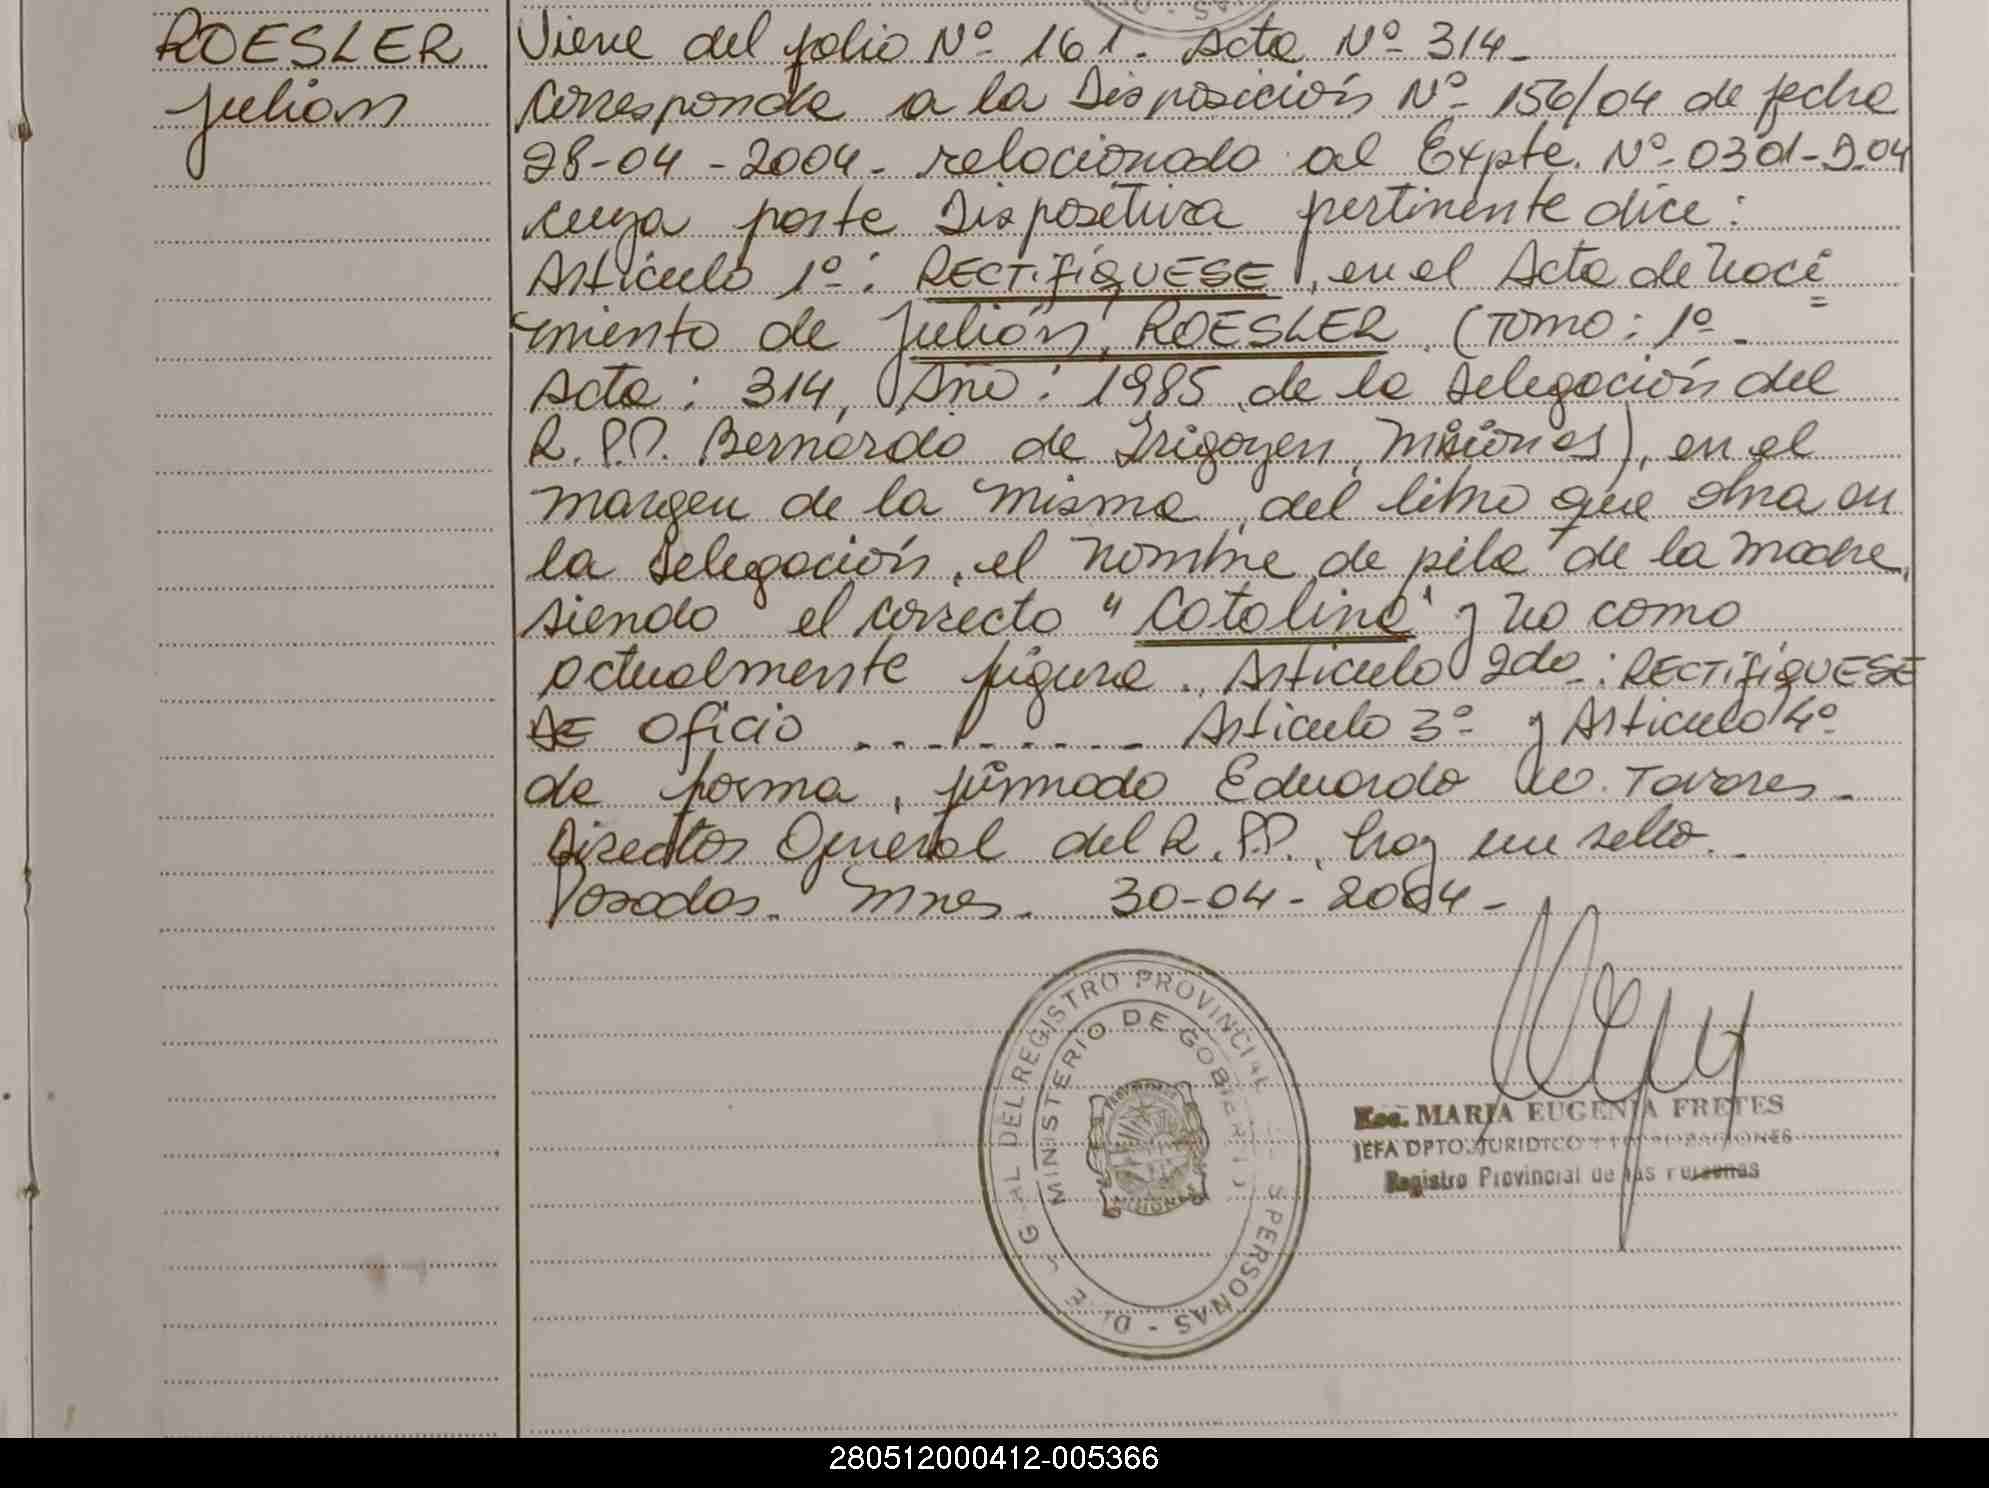 ROESLER
Julián
Viene del folio Nº 161. Acta Nº 314 -
Corresponde a la Disposición Nº 156/04 de fecha
28-04-2004 - relacionado al Expte. Nº 0301-D.04
cuya parte Dispositiva pertinente dice:
Artículo 1º: RECTIFÍQUESE, en el Acta de naci
miento de Julián, ROESLER. (Tomo: 1º -
Acta: 314, Año: 1985, de la Delegación del
R.P.P. Bernardo de Irigoyen, Misiones), en el
margen de la misma, del libro que obra en
la Delegación, el nombre de pila de la madre,
siendo el correcto "Catalina" y no como
actualmente figura. Artículo 2do: RECTIFÍQUESE
DE oficio . . . - . - . . - Artículo 3º y Artículo 4º
de forma, firmado Eduardo W. Tavares -
Director General del R.P.P., hay un sello. -
Posadas - Mnes - 30-04-2004 -
DEL REGISTRO PROVINCIAL
PERSONAS
MINISTERIO DE GOBIERNO
MISIONES
Esc. MARIA EUGENIA FRETES
JEFA DPTO. JURIDICO
Registro Provincial de las Personas
280512000412-005366